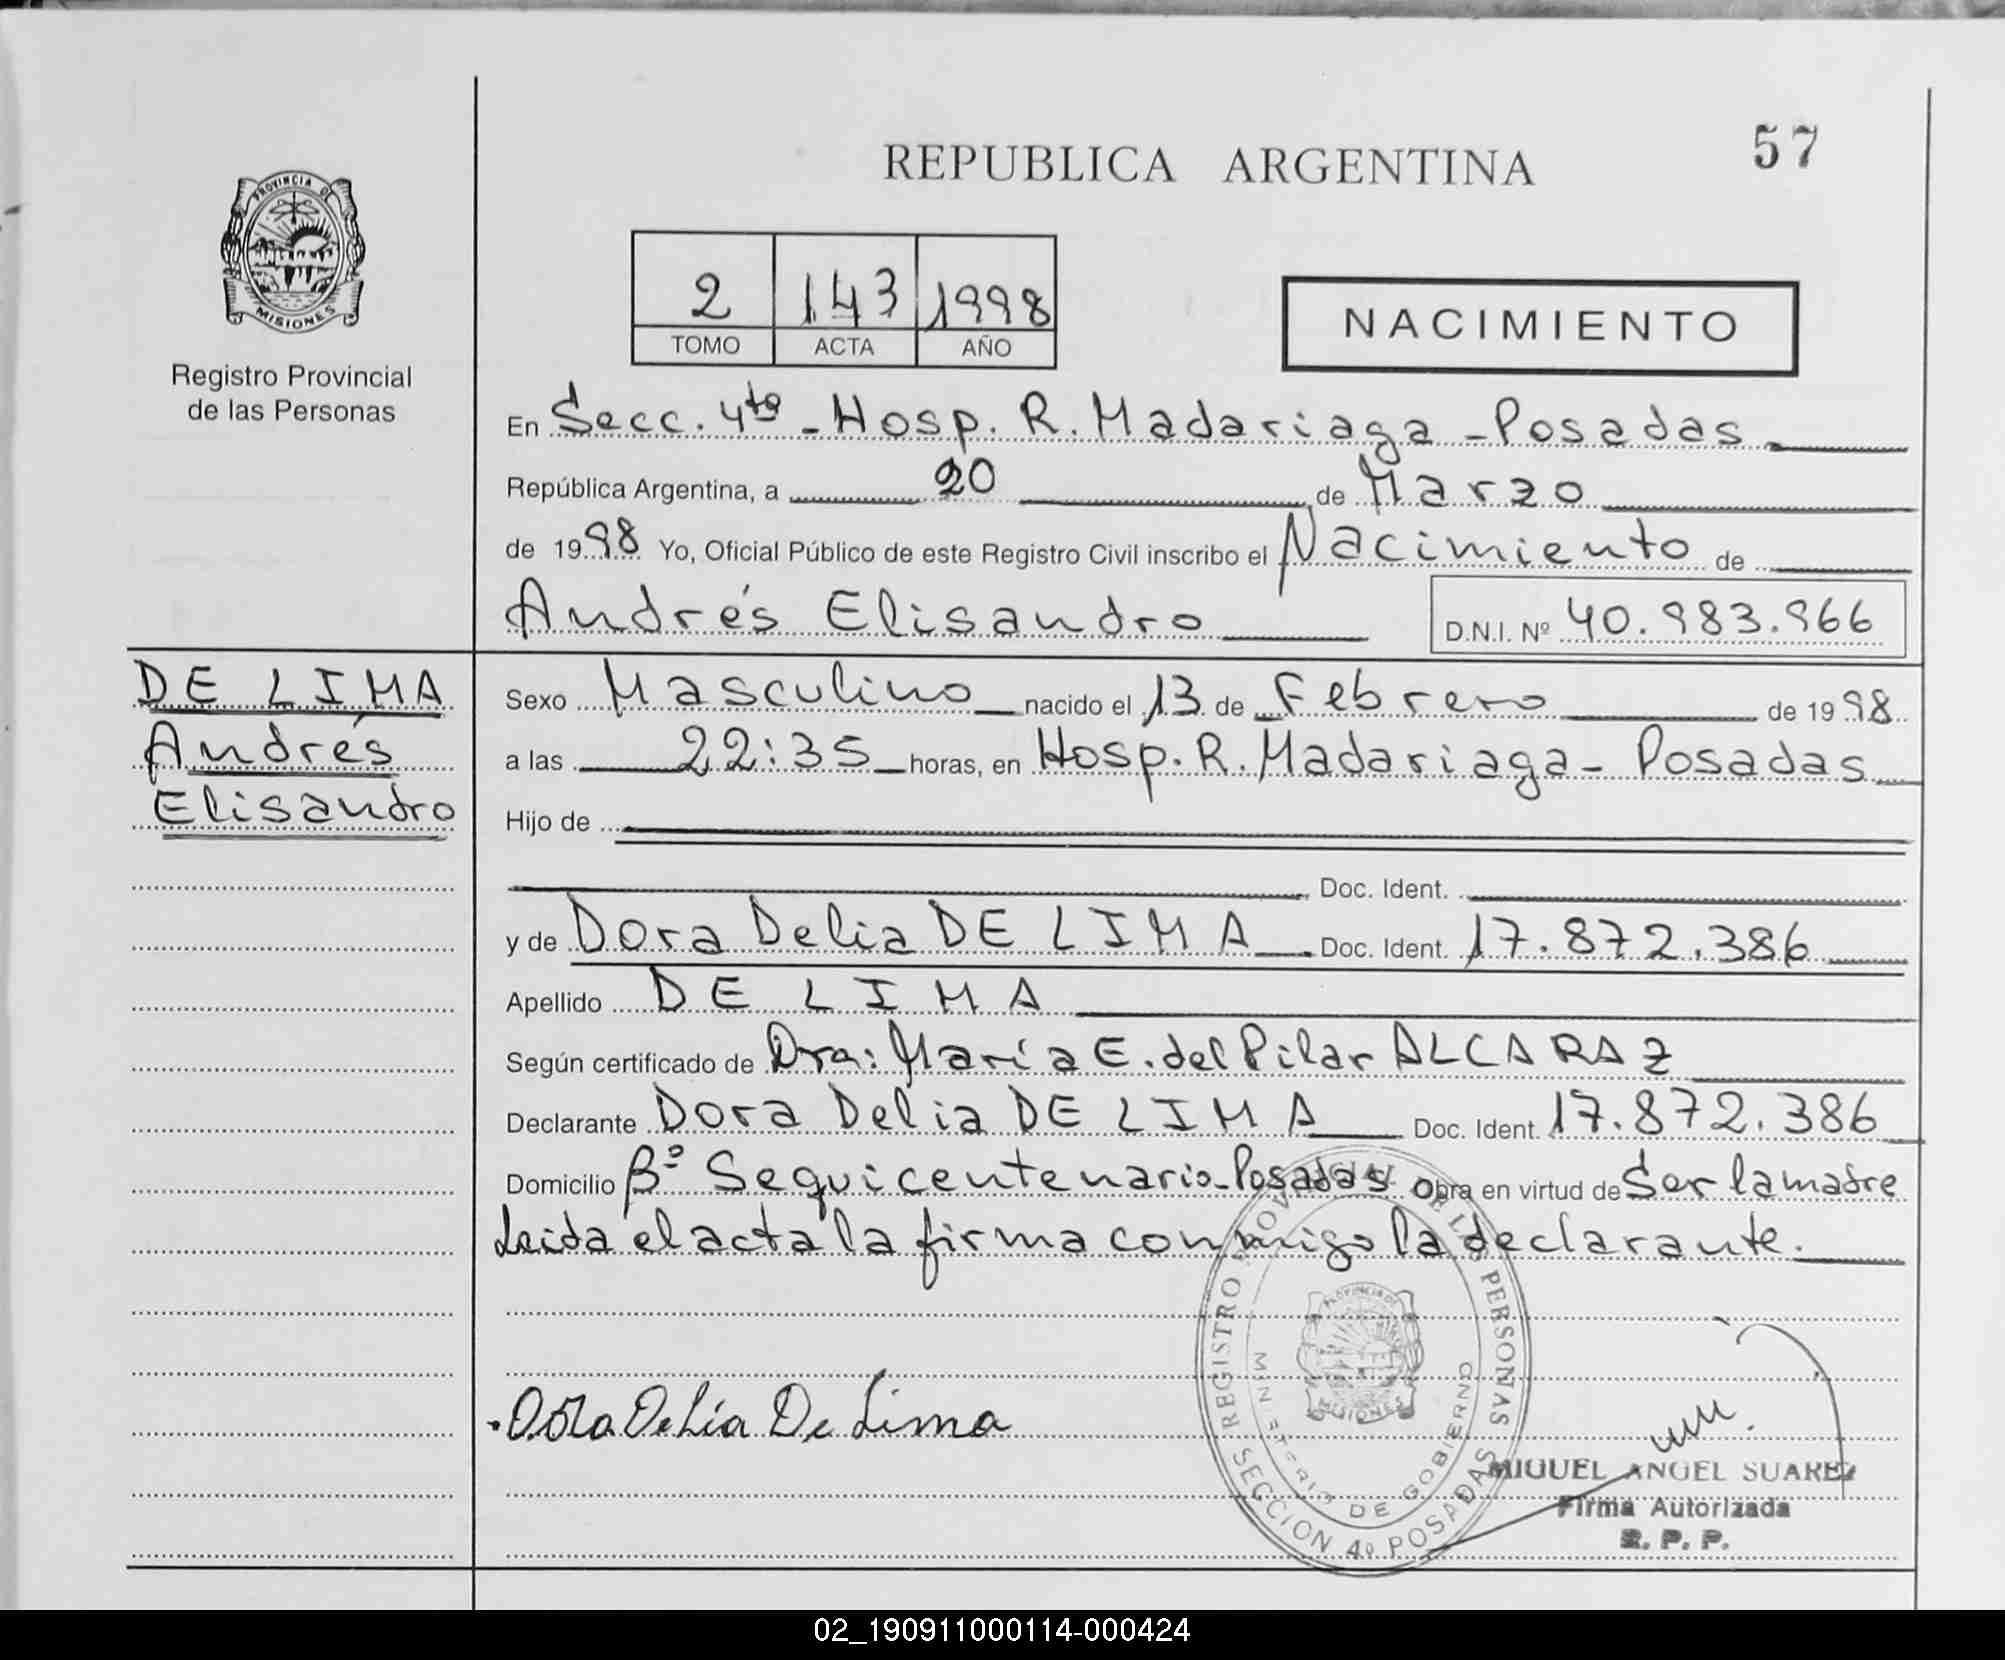 57
REPUBLICA ARGENTINA
PROVINCIA DE
MISIONES
Registro Provincial
de las Personas
2 143 1998
TOMO ACTA AÑO
NACIMIENTO
En Secc. 4ta - Hosp. R. Madariaga - Posadas
República Argentina, a 20 de Marzo
de 1998 Yo, Oficial Público de este Registro Civil inscribo el Nacimiento de
Andrés Elisandro D.N.I. Nº 40.983.966
DE LIMA
Andrés
Elisandro
Sexo Masculino nacido el 13 de Febrero de 1998
a las 22:35 horas, en Hosp. R. Madariaga - Posadas
Hijo de
Doc. Ident.
y de Dora Delia DE LIMA Doc. Ident. 17.872.386
Apellido DE LIMA
Según certificado de Dra: María E. del Pilar ALCARAZ
Declarante Dora Delia DE LIMA Doc. Ident. 17.872.386
Domicilio Bº Sequicentenario - Posadas Obra en virtud de Ser la madre
Leida el acta la firma conmigo la declarante.
REGISTRO PROVINCIAL DE LAS PERSONAS
MINISTERIO DE GOBIERNO
PROVINCIA DE
MISIONES
SECCION 4º POSADAS
Dora Delia De Lima
MIGUEL ANGEL SUAREZ
Firma Autorizada
R. P. P.
02_190911000114-000424